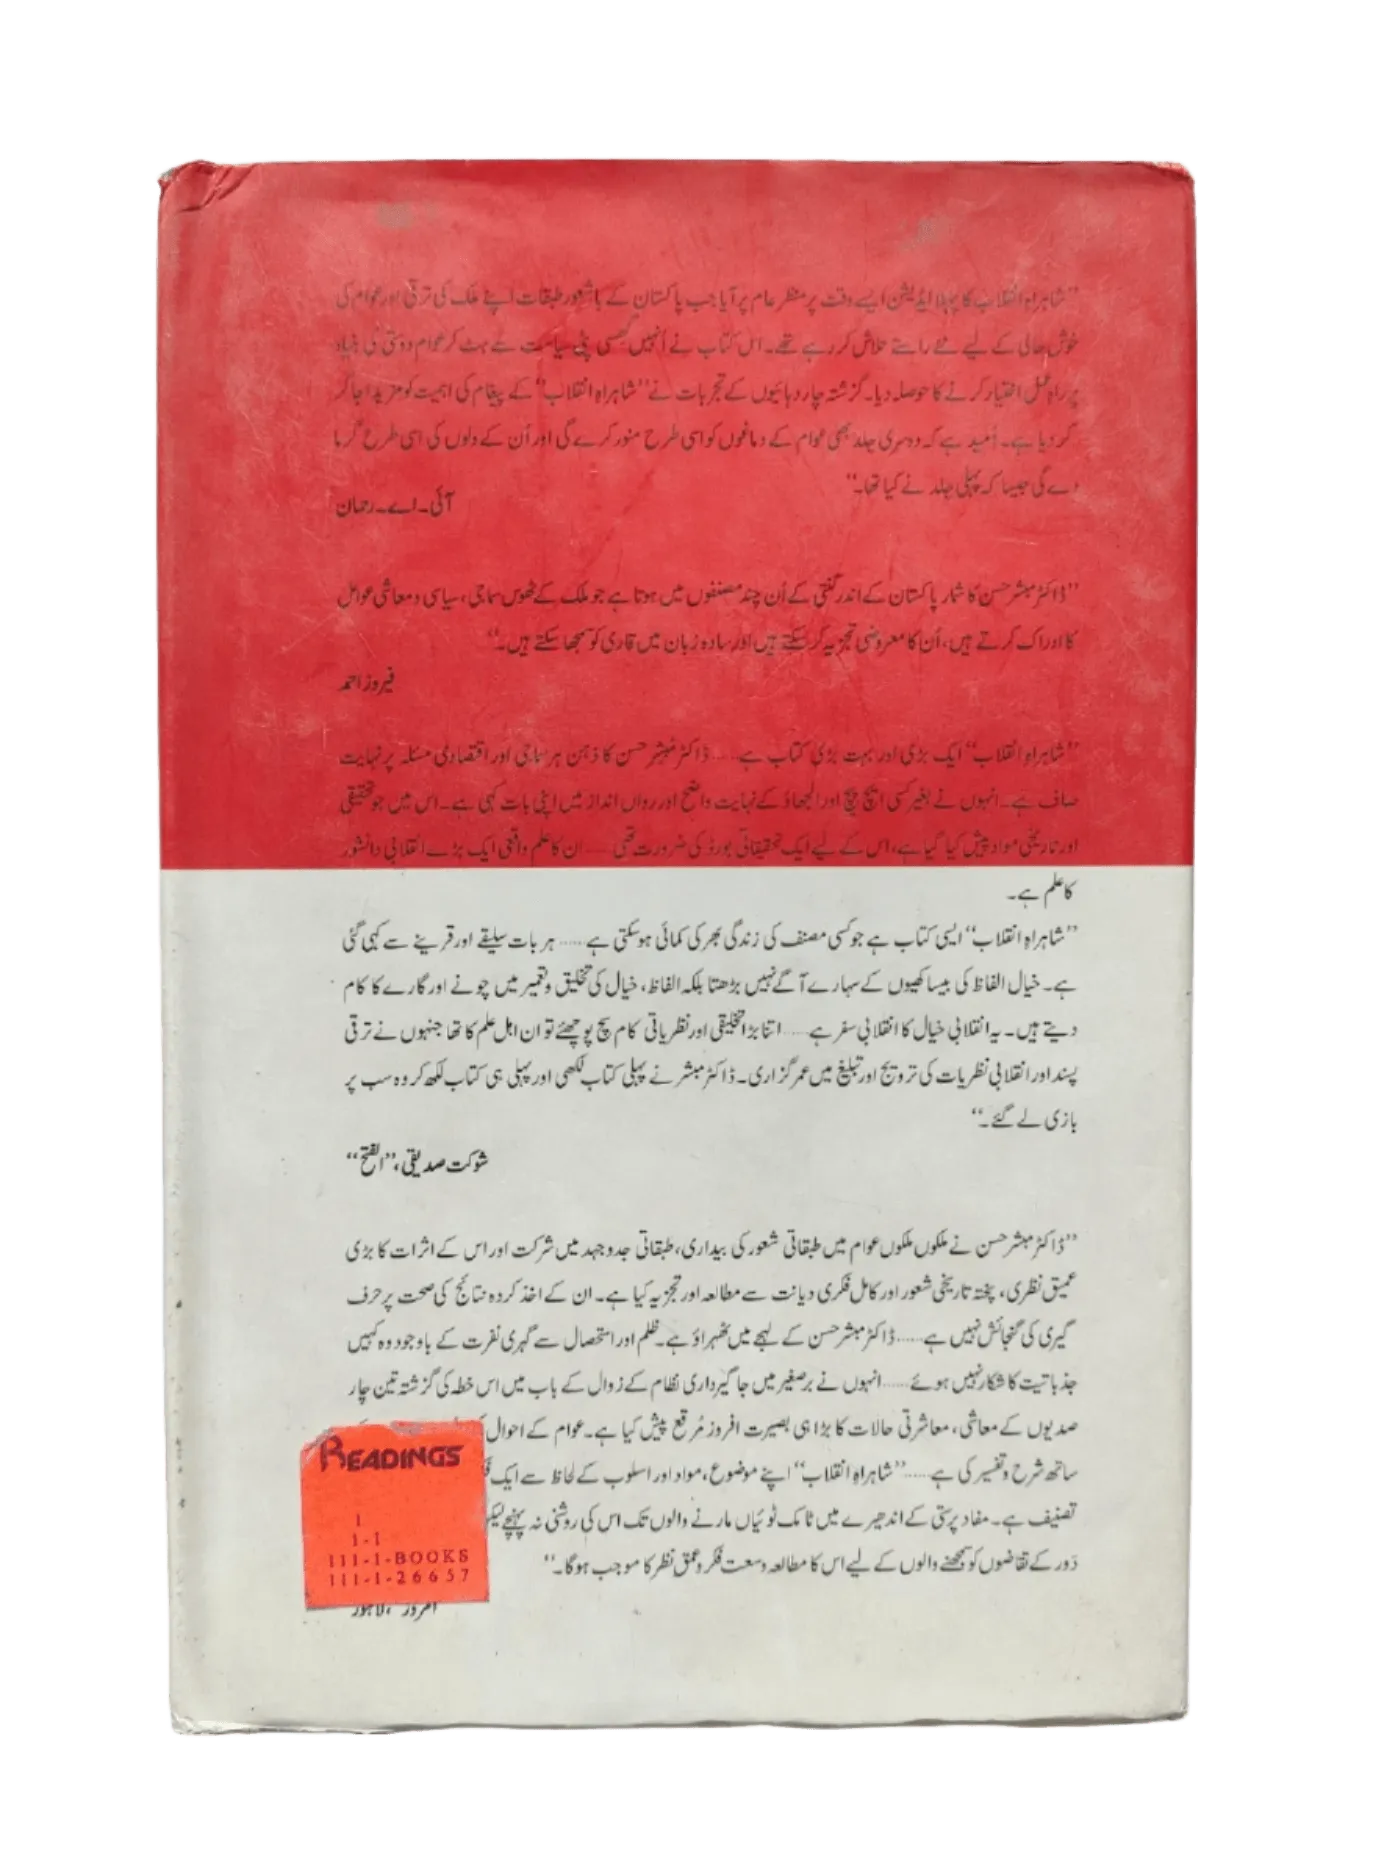 ”شاہراہِ انقلاب کا پہلا ایڈیشن ایسے وقت پر منظر عام پر آیا جب پاکستان کے باشعور طبقات اپنے ملک کی ترقی اور عوام کی
خوش حالی کے لیے نئے راستے تلاش کر رہے تھے۔ اس کتاب نے اُنہیں گھسی پٹی سیاست سے ہٹ کر عوام دوستی کی بنیاد
پر راہ عمل اختیار کرنے کا حوصلہ دیا۔ گزشتہ چار دہائیوں کے تجربات نے ”شاہراہِ انقلاب“ کے پیغام کی اہمیت کو مزید اجاگر
کر دیا ہے۔ اُمید ہے کہ دوسری جلد بھی عوام کے دماغوں کو اسی طرح منور کرے گی اور اُن کے دلوں کی اسی طرح گرما
دے گی جیسا کہ پہلی جلد نے کیا تھا۔“
آئی۔اے۔رحمان
”ڈاکٹر مبشر حسن کا شمار پاکستان کے اندر گنتی کے اُن چند مصنفوں میں ہوتا ہے جو ملک کے ٹھوس سماجی، سیاسی و معاشی عوامل
کا ادراک کرتے ہیں، اُن کا معروضی تجزیہ کر سکتے ہیں اور سادہ زبان میں قاری کو سمجھا سکتے ہیں۔“
فیروز احمد
”شاہراہِ انقلاب“ ایک بڑی اور بہت بڑی کتاب ہے ..... ڈاکٹر مُبشر حسن کا ذہن ہر سماجی اور اقتصادی مسئلہ پر نہایت
صاف ہے۔ انہوں نے بغیر کسی ایچ پیچ اور الجھاؤ کے نہایت واضح اور رواں انداز میں اپنی بات کہی ہے۔ اس میں جو تحقیقی
اور تاریخی مواد پیش کیا گیا ہے، اس کے لیے ایک تحقیقاتی بورڈ کی ضرورت تھی ..... ان کا علم واقعی ایک بڑے انقلابی دانشور
کا علم ہے۔
”شاہراہِ انقلاب“ ایسی کتاب ہے جو کسی مصنف کی زندگی بھر کی کمائی ہو سکتی ہے ..... ہر بات سلیقے اور قرینے سے کہی گئی
ہے۔ خیال الفاظ کی بیساکھیوں کے سہارے آگے نہیں بڑھتا بلکہ الفاظ، خیال کی تخلیق و تعمیر میں چونے اور گارے کا کام
دیتے ہیں۔ یہ انقلابی خیال کا انقلابی سفر ہے ..... اتنا بڑا تخلیقی اور نظریاتی کام سچ پوچھئے تو ان اہل علم کا تھا جنہوں نے ترقی
پسند اور انقلابی نظریات کی ترویج اور تبلیغ میں عمر گزاری۔ ڈاکٹر مبشر نے پہلی کتاب لکھی اور پہلی ہی کتاب لکھ کر وہ سب پر
بازی لے گئے۔“
شوکت صدیقی، ”الفتح“
”ڈاکٹر مبشر حسن نے ملکوں ملکوں عوام میں طبقاتی شعور کی بیداری، طبقاتی جدوجہد میں شرکت اور اس کے اثرات کا بڑی
عمیق نظری، پختہ تاریخی شعور اور کامل فکری دیانت سے مطالعہ اور تجزیہ کیا ہے۔ ان کے اخذ کردہ نتائج کی صحت پر حرف
گیری کی گنجائش نہیں ہے ..... ڈاکٹر مبشر حسن کے لہجے میں ٹھہراؤ ہے۔ ظلم اور استحصال سے گہری نفرت کے باوجود وہ کہیں
جذباتیت کا شکار نہیں ہوئے ..... انہوں نے برصغیر میں جاگیرداری نظام کے زوال کے باب میں اس خطہ کی گزشتہ تین چار
صدیوں کے معاشی، معاشرتی حالات کا بڑا ہی بصیرت افروز مُرقع پیش کیا ہے۔ عوام کے احوال
ساتھ شرح و تفسیر کی ہے ..... ”شاہراہِ انقلاب“ اپنے موضوع، مواد اور اسلوب کے لحاظ سے ایک
تصنیف ہے۔ مفاد پرستی کے اندھیرے میں ٹامک ٹوئیاں مارنے والوں تک اس کی روشنی نہ پہنچے لیکن
دَور کے تقاضوں کو سمجھنے والوں کے لیے اس کا مطالعہ وسعت فکر و عمق نظر کا موجب ہوگا۔“
امروز، لاہور
READINGS
1
1-1
111-1-BOOKS
111-1-26657